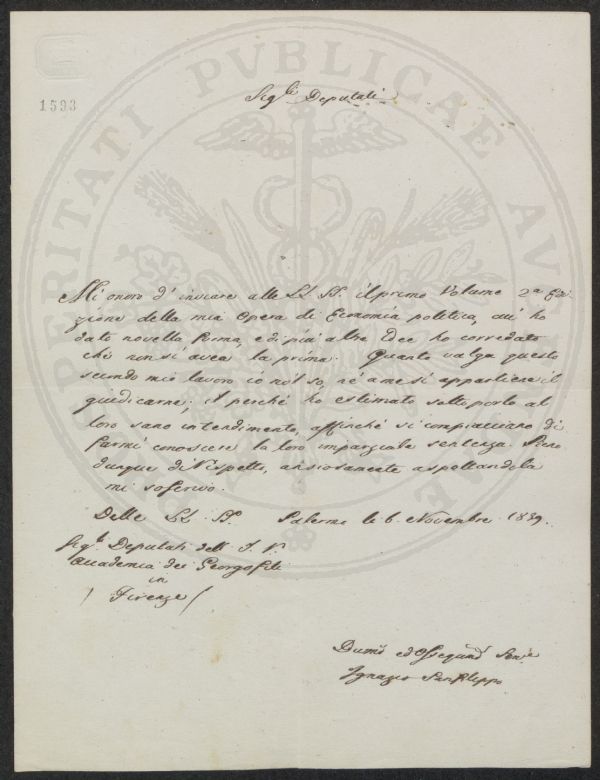 1593
PROSPERITATI PVBLICAE AVGENDAE
Sig.li Deputati
Mi onoro d'inviare alle LL. SS. il primo Volume 2.a Edi-
zione della mia Opera di Economia politica, cui ho
dato novella forma, e di più altre Idee ho corredato
che non si avea la prima. Quanto valga questo
secondo mio lavoro io nol so, nè a me si appartiene il
giudicarne; perchè ho estimato sottoporlo al
loro sano intendimento, affinchè si compiacciano di
farmi conoscere la loro imparziale sentenza. Pieno
dunque di rispetto, ansiosamente aspettandola
mi soscrivo.
Delle LL. SS. Palermo li 6. Novembre 1839.
Sig.li Deputati dell' I. R.
Accademia dei Georgofili
in
Firenze
Dev.mo ed Ossequ.mo Ser.e
Ignazio Sanfilippo